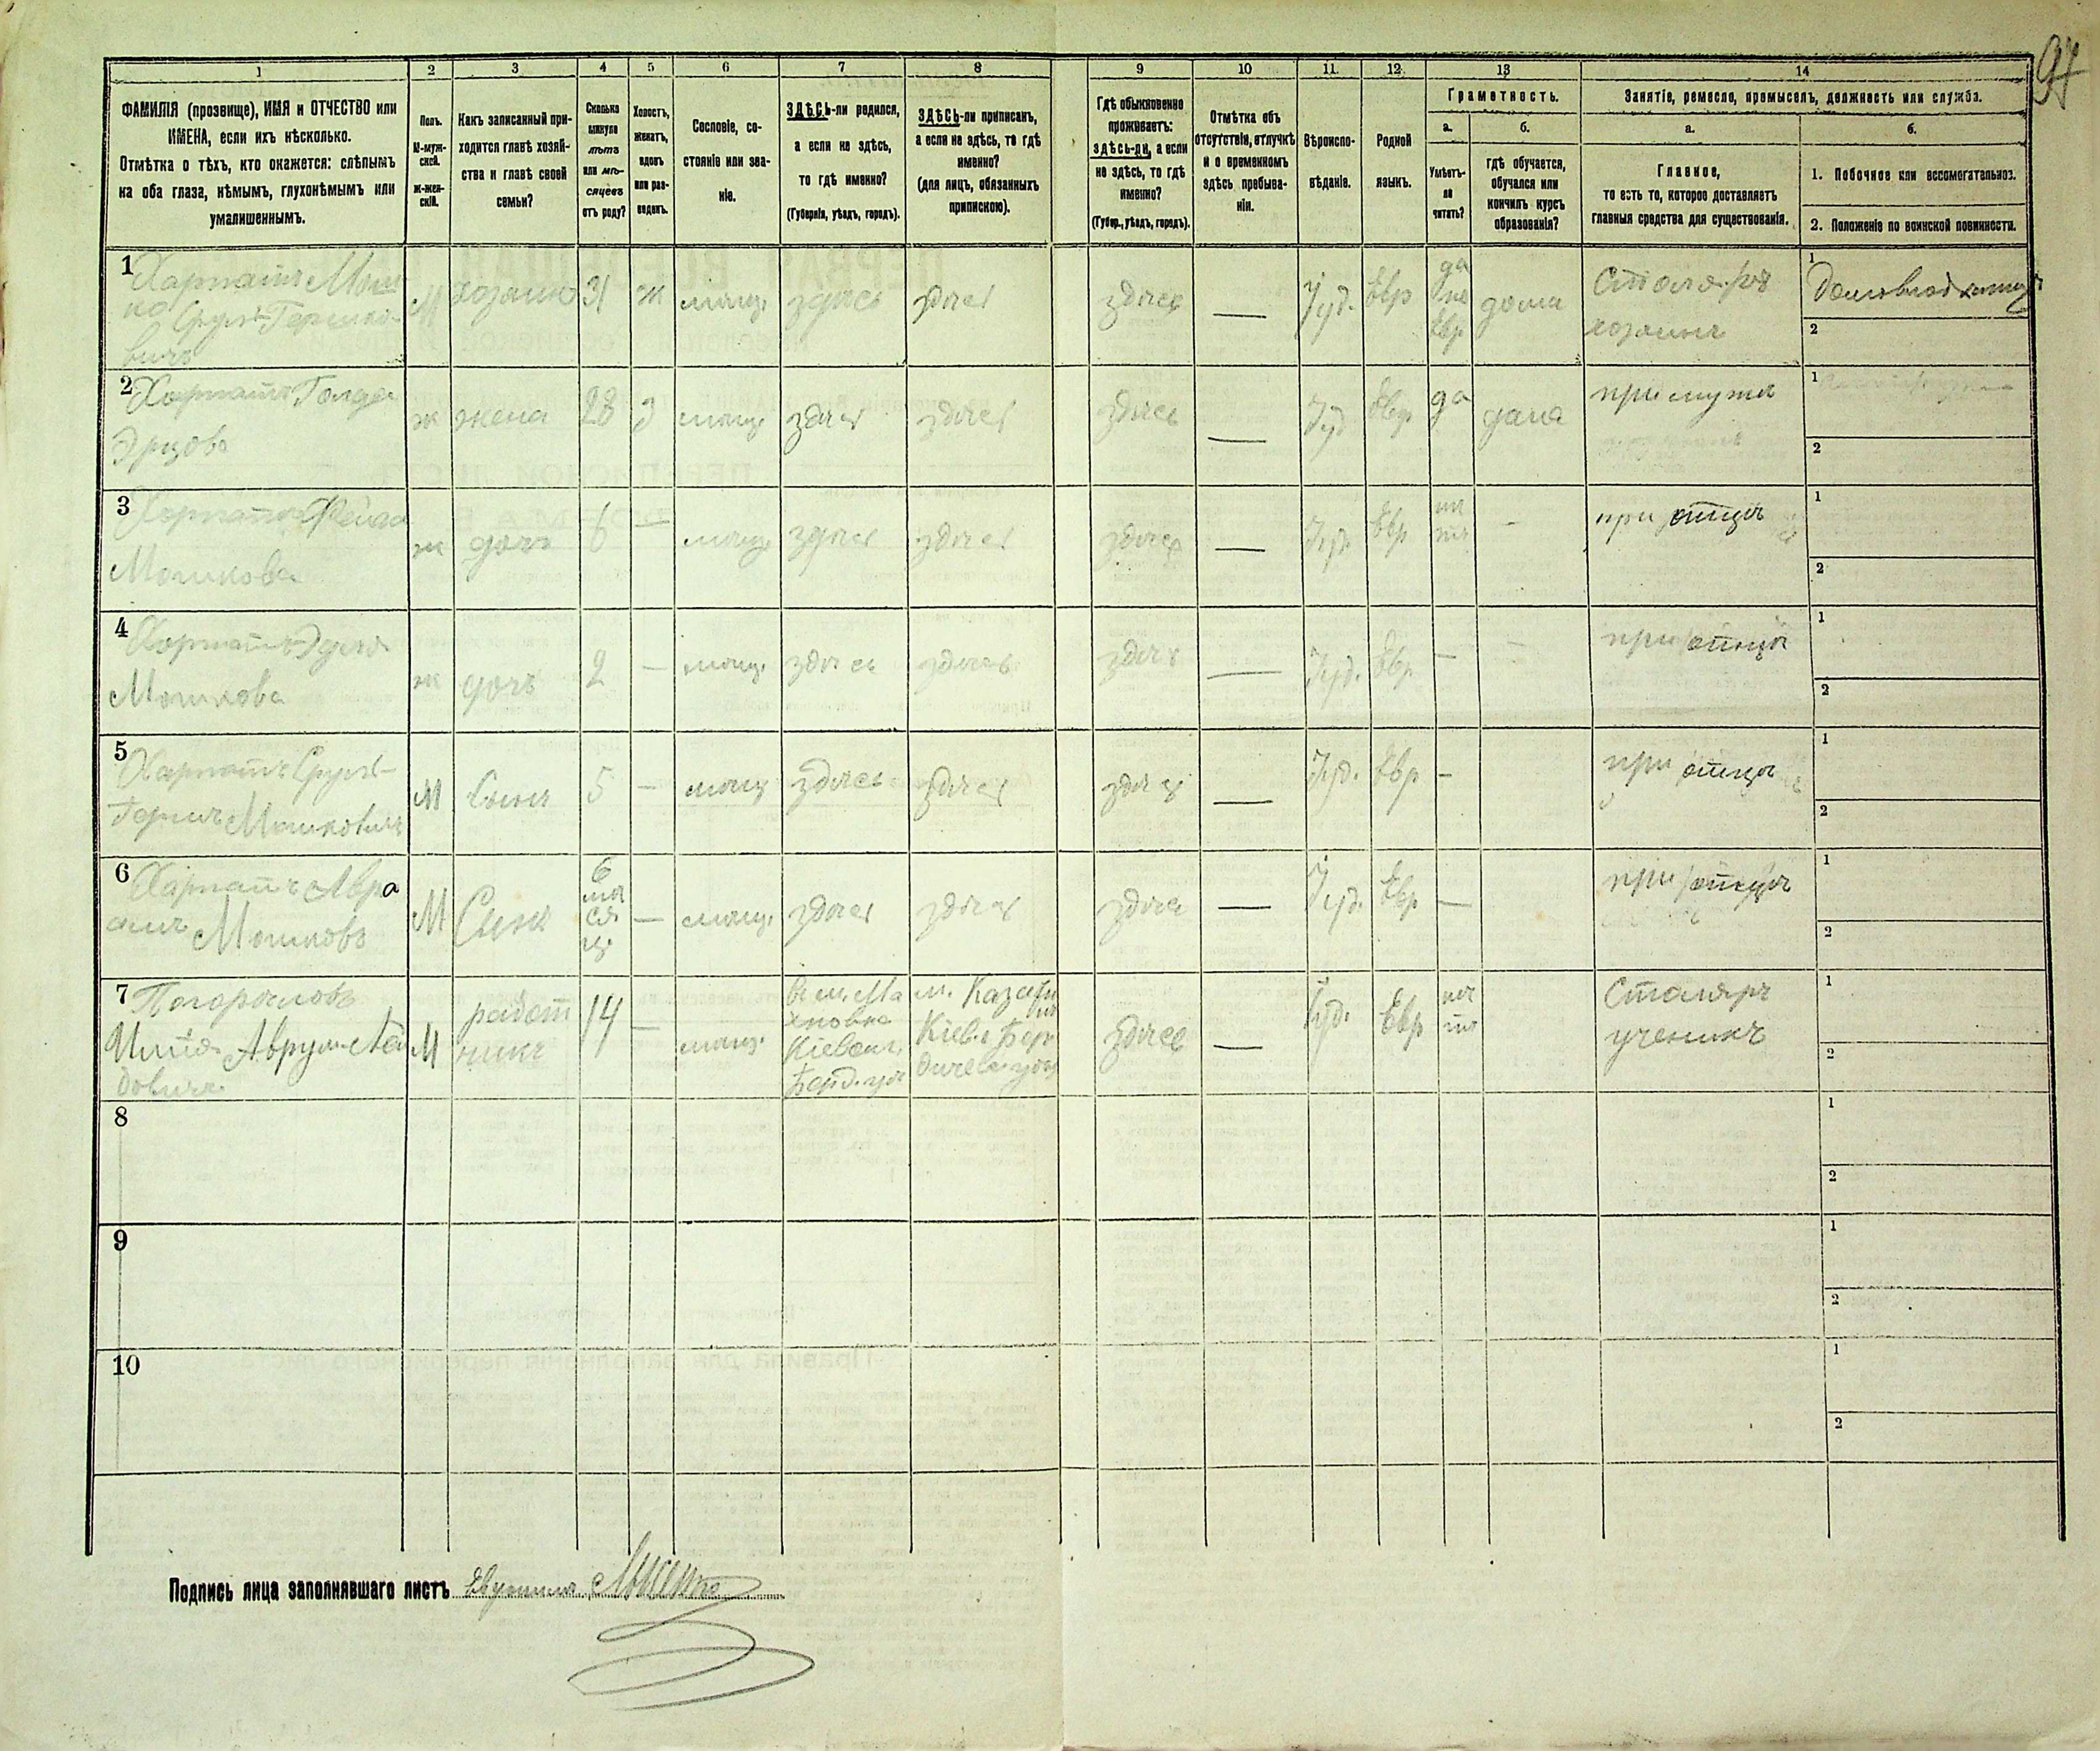 97
1 2 3 4 5 6 7 8 9 10 11 12 13 14
ФАМИЛІЯ (прозвище), ИМЯ и ОТЧЕСТВО или
ИМЕНА, если ихъ нѣсколько.
Отмѣтка о тѣхъ, кто окажется: слѣпымъ
на оба глаза, нѣмымъ, глухонѣмымъ или
умалишеннымъ.
Полъ.
М-муж-
ской.
Ж-жен-
скій.
Какъ записанный при-
ходится главѣ хозяй-
ства и главѣ своей
семьи?
Сколько
минуло
лѣтъ
или мѣ-
сяцевъ
отъ роду?
Холостъ,
женатъ,
вдовъ
или раз-
веденъ.
Сословіе, со-
стояніе или зва-
ніе.
ЗДѢСЬ-ли родился,
а если не здѣсь,
то гдѣ именно?
(Губернія, уѣздъ, городъ).
ЗДѢСЬ-ли приписанъ,
а если не здѣсь, то гдѣ
именно?
(для лицъ, обязанныхъ
припискою).
Гдѣ обыкновенно
проживаетъ:
здѣсь-ли, а если
не здѣсь, то гдѣ
именно?
(Губер., уѣздъ, городъ).
Отмѣтка объ
отсутствіи, отлучкѣ
и о временномъ
здѣсь пребыва-
ніи.
Вѣроиспо-
вѣданіе.
Родной
языкъ.
Грамотность.
а.
Умѣетъ-
ли
читать?
б.
гдѣ обучается,
обучался или
кончилъ курсъ
образованія?
Занятіе, ремесло, промыселъ, должность или служба.
а.
Главное,
то есть то, которое доставляетъ
главныя средства для существованія.
б.
1. Побочное или вспомогательное.
2. Положеніе по воинской повинности.
1 Харпатъ Мош
ко Сруль Гершко-
вичъ
М хозяинъ 31 ж мѣщ. здѣсь здѣсь здѣсь — Іуд. Евр да по Евр дома
Столяръ
хозяинъ
1
2
2 Харпатъ Голда
ж жена 28 З мѣщ. здѣсь здѣсь здѣсь — Іуд Евр да дома
при мужѣ
1
2
3 Харпатъ
Мошкова
ж дочь 6 — мѣщ. здѣсь здѣсь здѣсь — Іуд. Евр нѣ тъ -
при отцѣ
1
2
4 Харпатъ
Мошкова
ж дочь 2 — мѣщ. здѣсь здѣсь здѣсь — Іуд. Евр — -
при отцѣ
1
2
5 Харпатъ Сруль-
Гершъ Мошковичъ
М Сынъ 5 — мѣщ здѣсь здѣсь здѣсь — Іуд. Евр -
при отцѣ
1
2
6 Харпатъ Авра
амъ Мошковъ
М Сынъ 6 мѣ ся ц. — мѣщ. здѣсь здѣсь здѣсь — Іуд. Евр —
при отцѣ
1
2
7 Погорѣловъ
Аврум
довичъ
М работ
никъ
14 — мѣщ.
В м. Ма
хновка
Кіевск.
Берд. уѣ
м. Казати
нѣ
Кіев. г Бер
дичев. уѣзд
здѣсь — Іуд. Евр нѣ тъ
Столяръ
ученикъ
1
2
8
1
2
9
1
2
10
1
2
Подпись лица заполнявшаго листъ